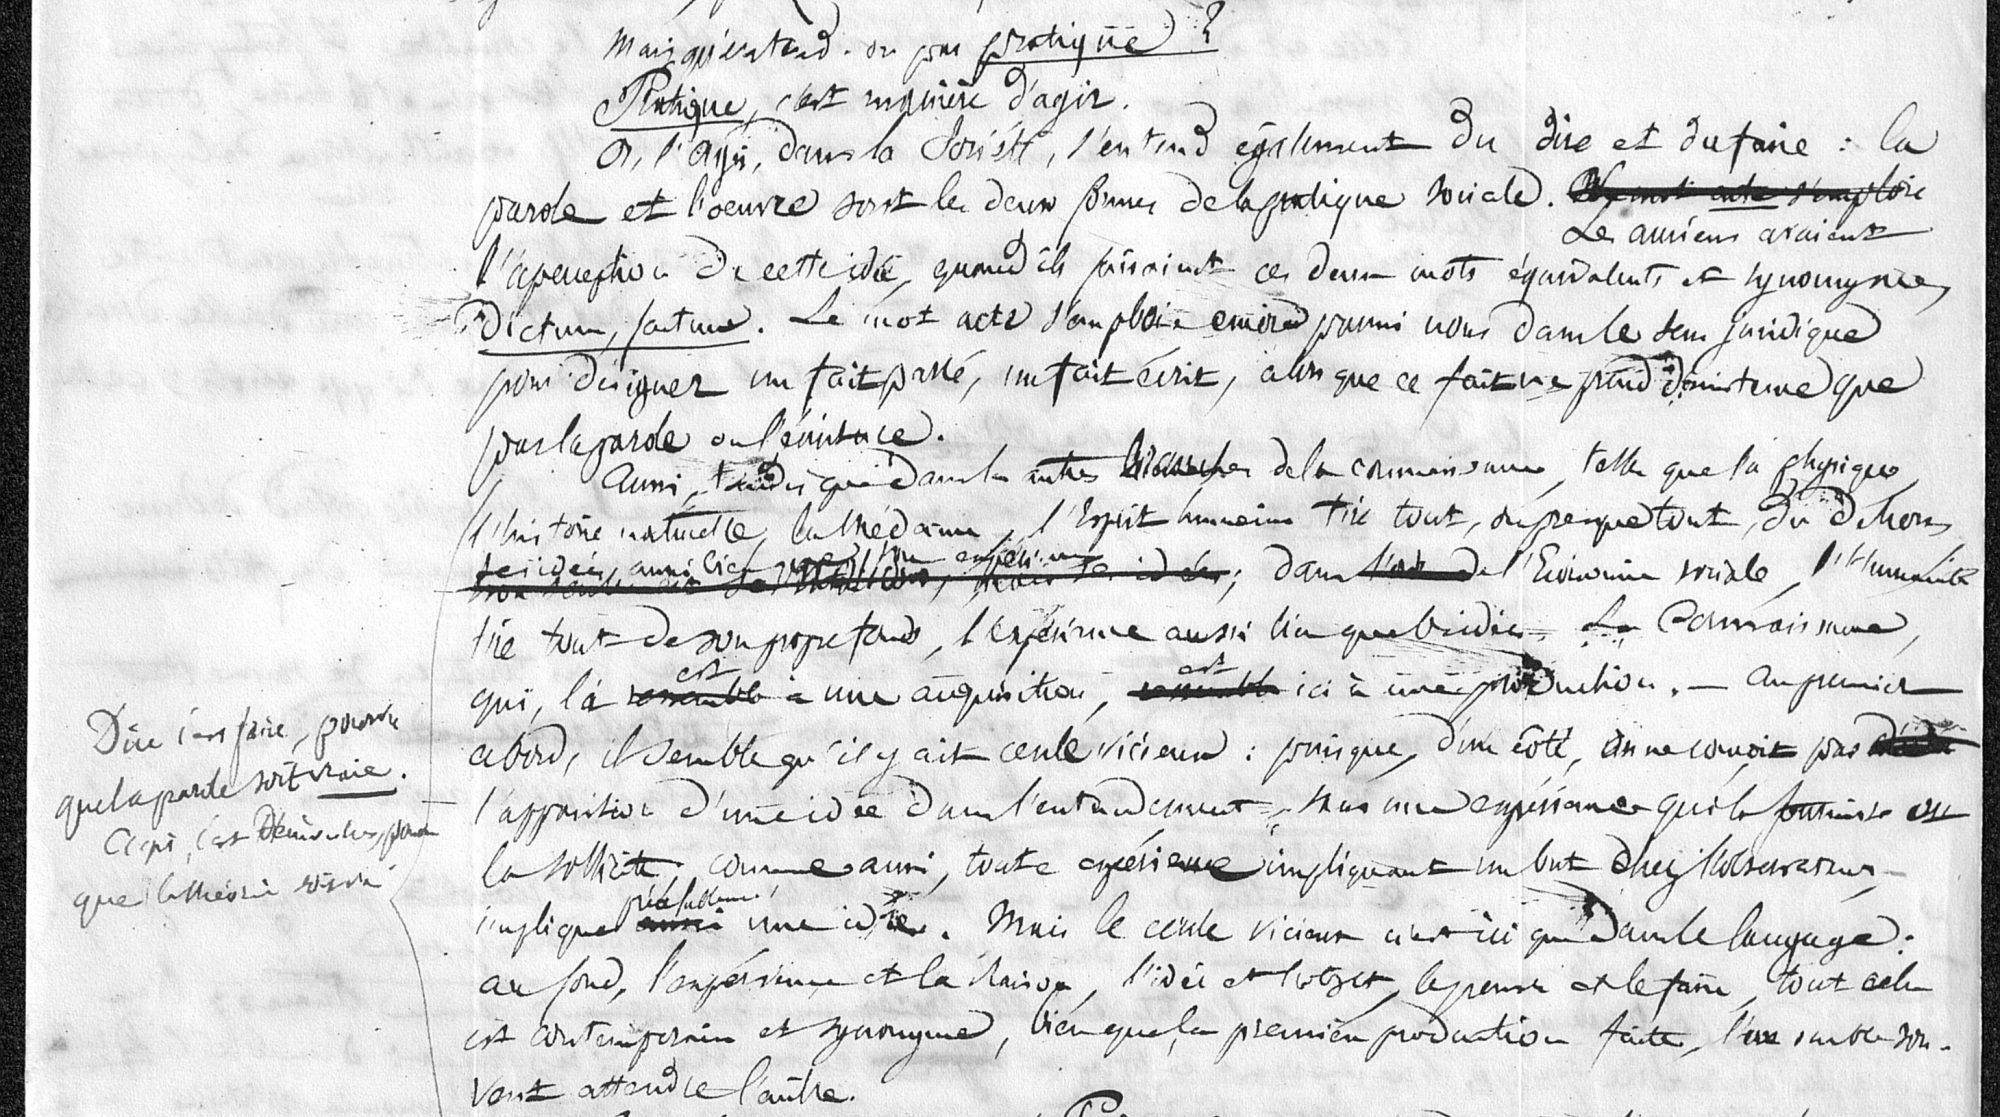 Mais qu'entend-on par pratique ?
Pratique, c'est manière d'agir.
Or, l'Agir, dans la Société, s'entend également du dire et du faire : la
parole et l'oeuvre sont les deux formes de la pratique sociale. Le mot acte s'emploie
Les anciens avaient
l'aperception de cette idée, quand ils faisaient ces deux mots équivalents et synonymes,
Dictum, factum. Le mot acte s'emploie encore parmi nous dans le sens juridique
pour désigner un fait passé, un fait écrit, alors que ce fait ne prend d'existence que
par la parole ou l'écriture.
Aussi, tandis que dans les autres branches de la connaissance, telles que la physique,
l'histoire naturelle, la médecine, l'Esprit humain tire tout, ou presque tout, du dehors,
ses idées, aussi bien que son expérience
ses idées ; dans l'Economie sociale, l'Humanité
tire tout de son propre fonds, l'expérience aussi bien que les idées. La Connaissance,
est est
qui, là semble à une acquisition, semble ici à une production. — Au premier
abord, il semble qu'il y ait cercle vicieux : puisque, d'un côté, on ne conçoit pas
l'apparition d'une idée dans l'entendement sans une expérience qui la fournisse ou
la sollicite, comme aussi, toute expérience impliquant un but chez l'observateur,
préalablement
implique aussi une idée. Mais le cercle vicieux n'est ici que dans le langage :
au fond, l'expérience et la Raison, l'idée et l'objet, le penser et le faire, tout cela
est contemporain et synonyme, bien que, la première production faite, l'une semble sou-
vent attendre l'autre.
Dire c'est faire, pourvu
que la parole soit vraie.
Agir, c'est Démontrer, pourvu
que la théorie soit vraie